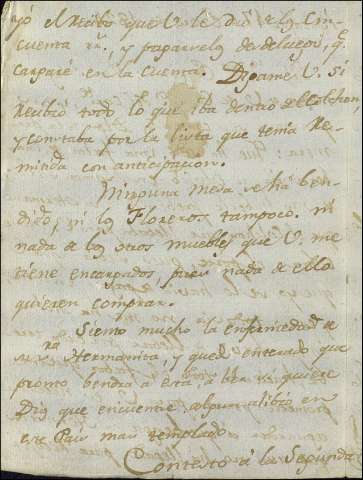 yó el Recibo que V. le dio de los Cin-
cuenta r.s, y pagarvelos desde luego, q.e
cargaré en la cuenta. Digame V. si
Recibio todo lo que iba dentro el Colchon,
y constaba por la lista que tenia Re-
mitida con anticipacion.
Ninguna Mesa se ha ben-
dido, ni los Floreros tampoco, ni
nada de los otros muebles que V. me
tiene encargados, pues nada de ello
quieren comprar.
Siento mucho la enfermedad de
Hermanita, y quedo enterado que
pronto bendra a esta, a ber si quiere
Dios que encuentre algun alibio en
este Pais mas templado.
Contesto á la Segunda